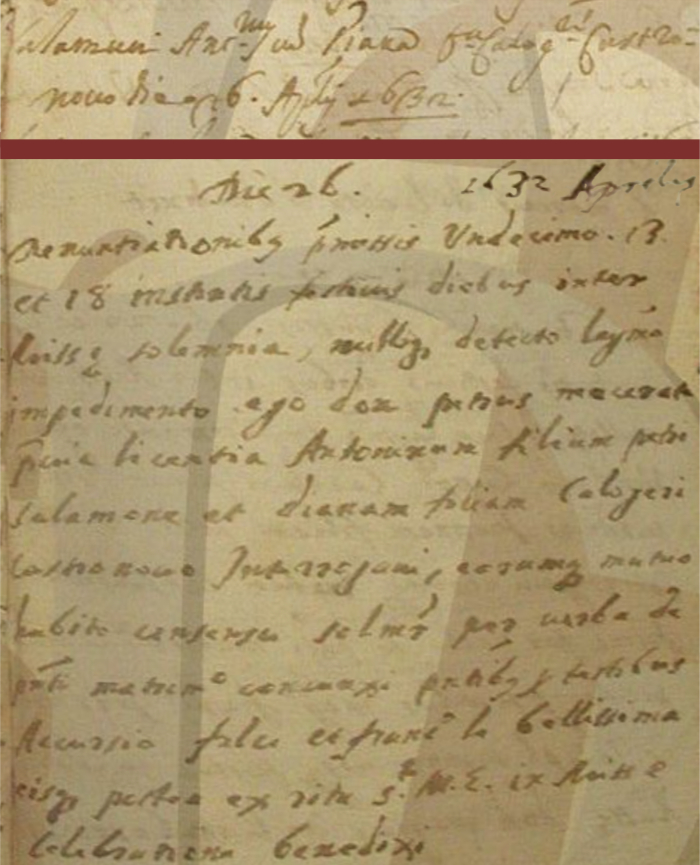 Salamuni Ant.num cud Diana f. Calog.ri Castro=
novo die 26. Aplis 1632.
Die 26. 1632 Aprelis
Denuntiationibq pmissis Undecimo. 13.
et 18 instantis festivis diebus inter
solemnia, nulloq detecto legmo
impedimento ego don petrus macerat
pvia licentia Antoninum filium petri
Salamone et dianam filiam Calogeri
Castronovo Interrogavi, eorumq mutuo
habito consensu solmr per verba de
pnti matrm.o coniunxi pntibq testibus
Accursio felu et franc.o la bellissima
eisq postea ex ritu S.te M. E. in Misse
Celebratione benedixi